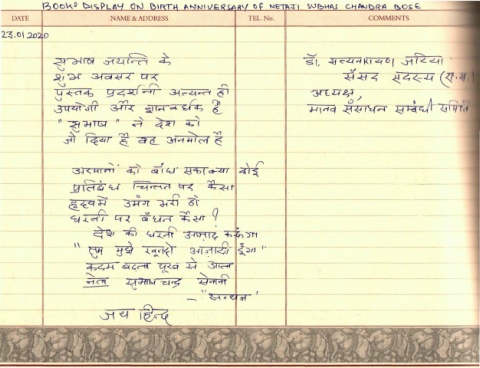 BOOKS DISPLAY ON BIRTH ANNIVERSARY OF NETAJI SUBHAS CHANDRA BOSE
DATE NAME & ADDRESS TEL. No. COMMENTS
23.01.2020
सुभाष जयन्ति के
शुभ अवसर पर
पुस्तक प्रदर्शनी अत्यन्त ही
उपयोगी और ज्ञानवर्धक है
"सुभाष" ने देश को
जो दिया है वह अनमोल है
अरमानों को बाँध सका क्या कोई
प्रतिबंध चिन्तन पर कैसा
हृदय में उमंग भरी हो
धरती पर बँधन कैसा?
देश की धरती आज़ाद
"तुम मुझे खून दो आज़ादी दूँगा"
कदम बढ़ता पूरब से आता
नेता सुभाष चन्द्र सेनानी
जय हिन्द
डॉ. सत्यनारायण जटिया
सँसद सदस्य (रा.स.)
अध्यक्ष,
मानव सँसाधन सम्बंधी समिति